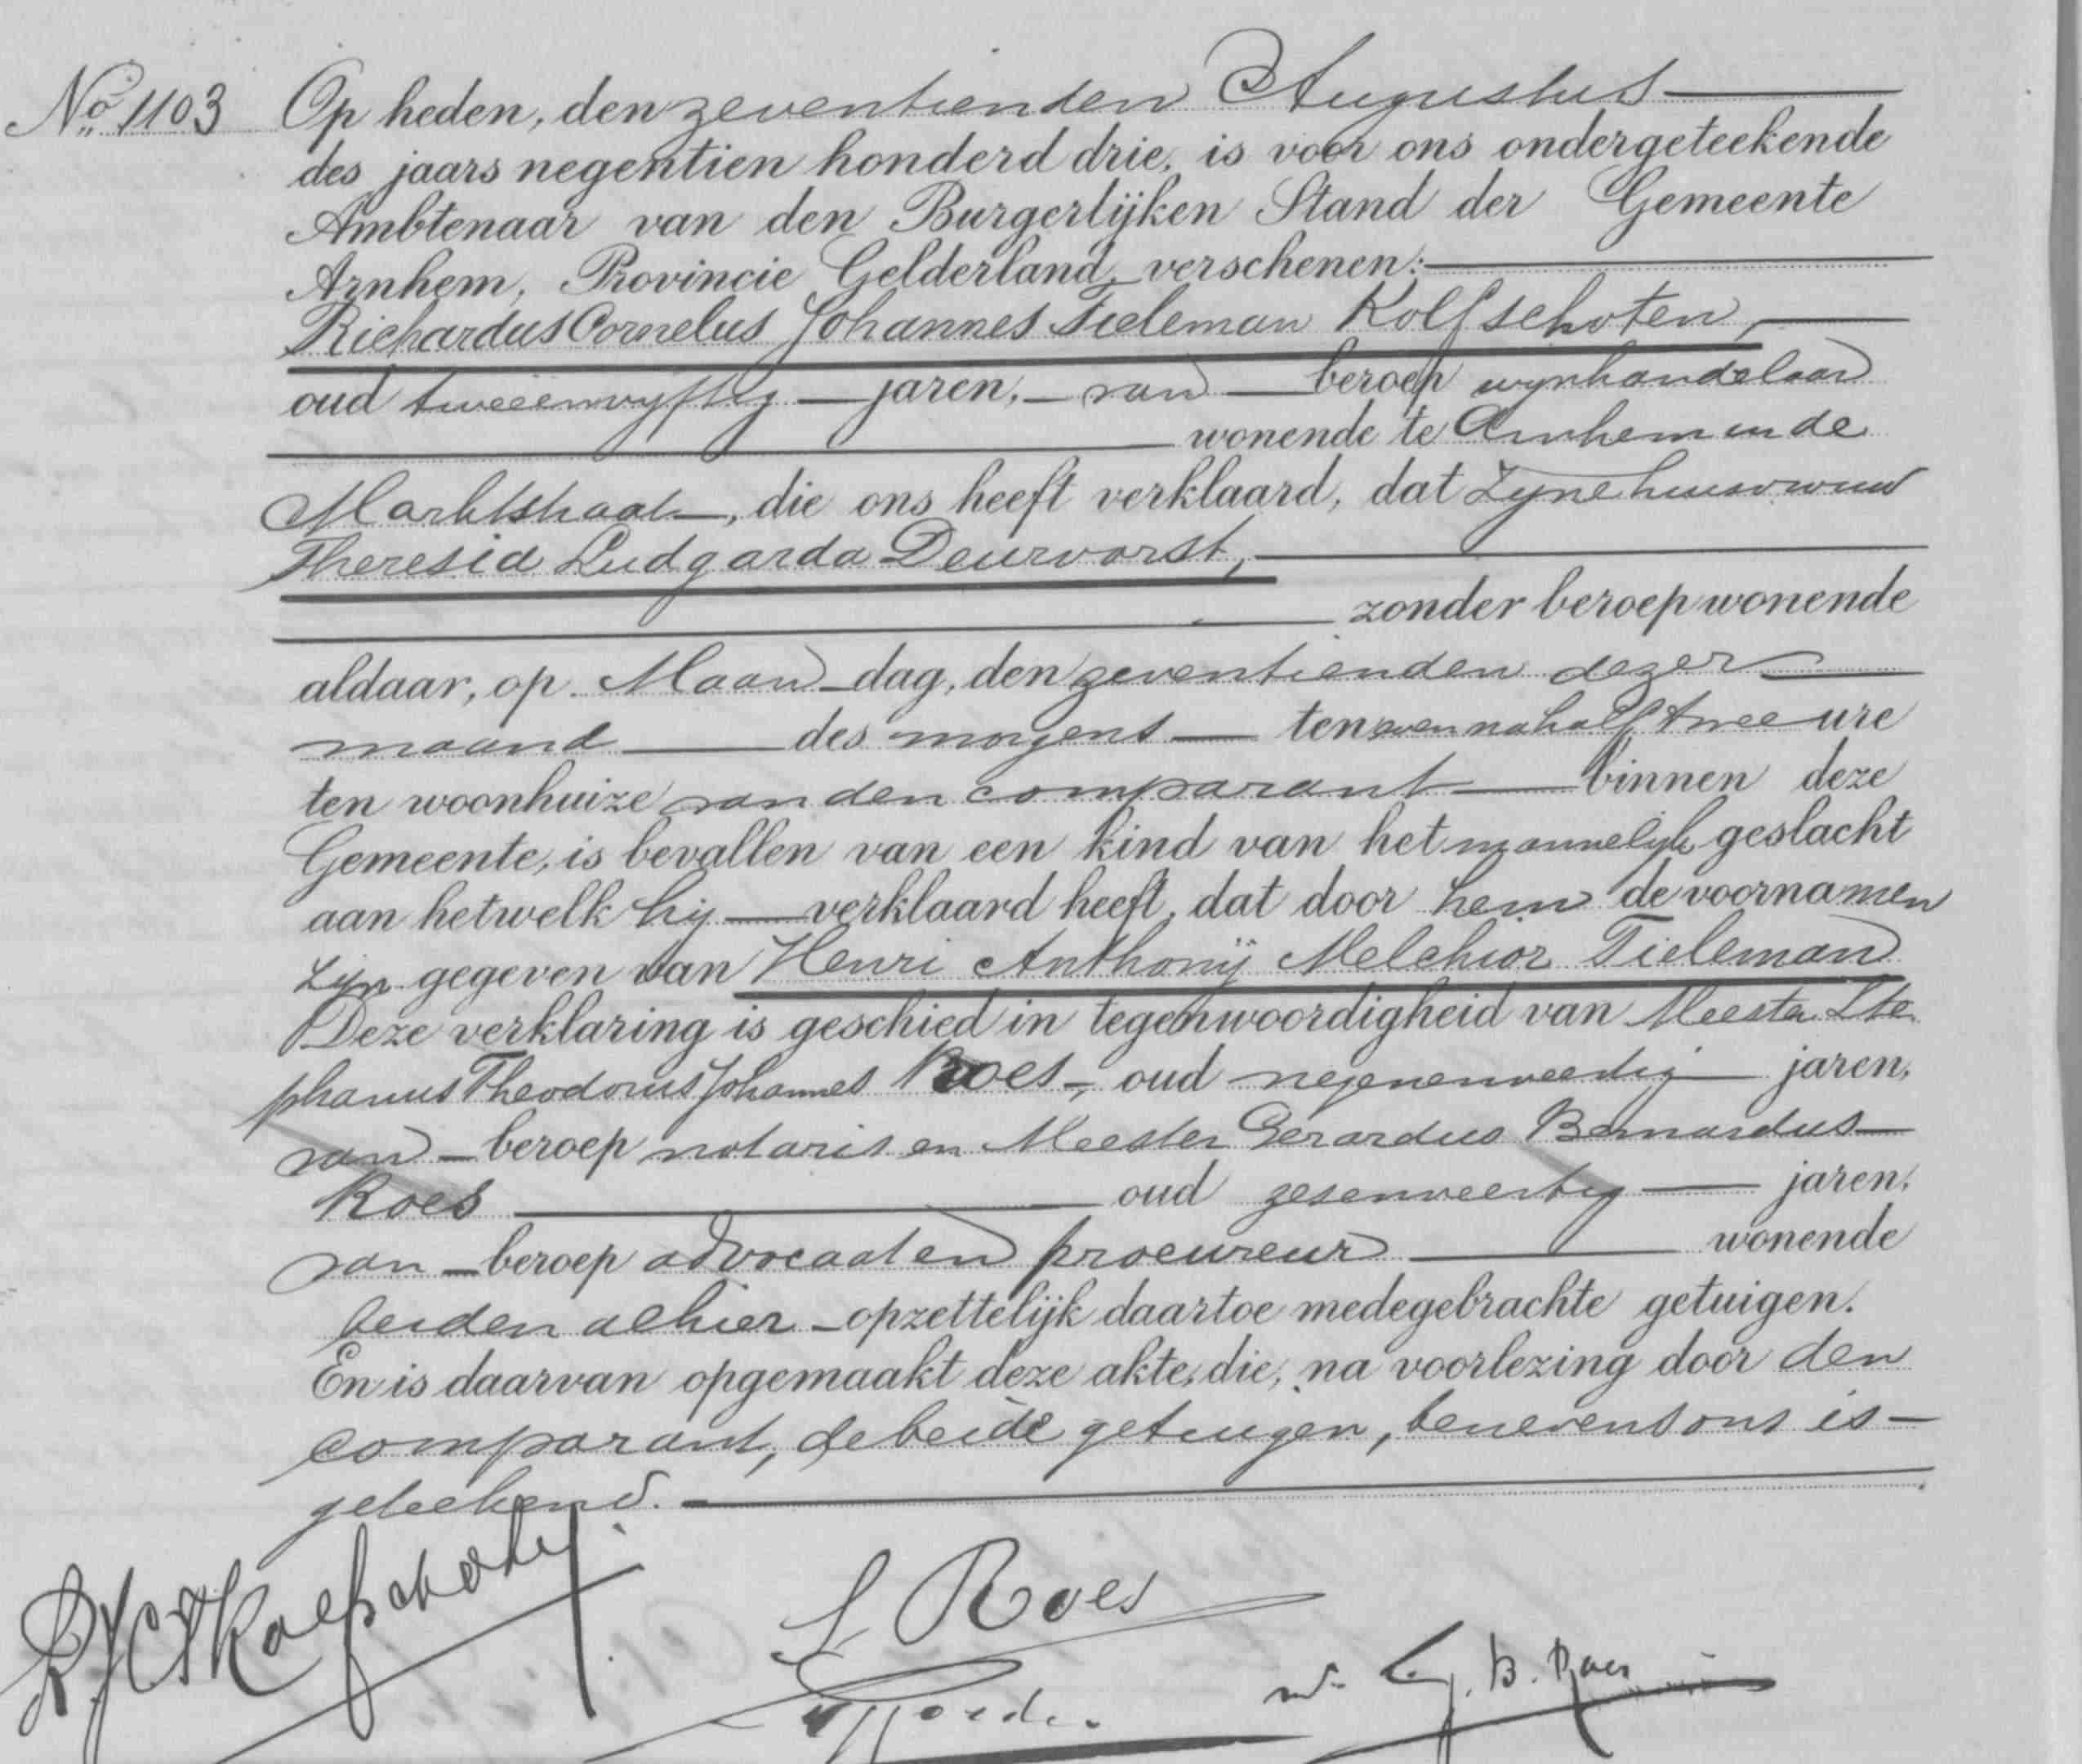 No. 1103
Op heden, den zeventienden Augustus
des jaars negentien honderd drie, is voor ons ondergeteekende
Ambtenaar van den Burgerlijken Stand der Gemeente
Arnhem, Provincie Gelderland, verschenen:
Richardus Cornelus Johannes Tieleman Kolfschoten,
oud tweeënvyftig jaren, van beroep wynhandelaar
wonende te Arnhem in de
Marktstraat, die ons heeft verklaard, dat zyne huisvrouw
Theresia Ludgarda Deurvorst,
zonder beroep wonende
aldaar, op Maandag, den zeventienden dezer
maand des morgens ten even na half twee ure
ten woonhuize van den comparant binnen deze
Gemeente, is bevallen van een kind van het mannelyk geslacht
aan hetwelk hij verklaard heeft, dat door hem de voornamen
zyn gegeven van Henri Anthonÿ Melchior Tieleman
Deze verklaring is geschied in tegenwoordigheid van Meester Ste
phanus Theodorus Johannes Roes, oud negenenveertig jaren,
van beroep notaris en Meester Gerardus Bernardus
Roes oud zesenveertig jaren,
van beroep advocaat en procureur wonende
beiden alhier opzettelijk daartoe medegebrachte getuigen.
En is daarvan opgemaakt deze akte, die, na voorlezing door den
comparant, de beide getuigen, benevens ons is
geteekend.
RJCTKolfschoten
S. Roes
G. B. Roes